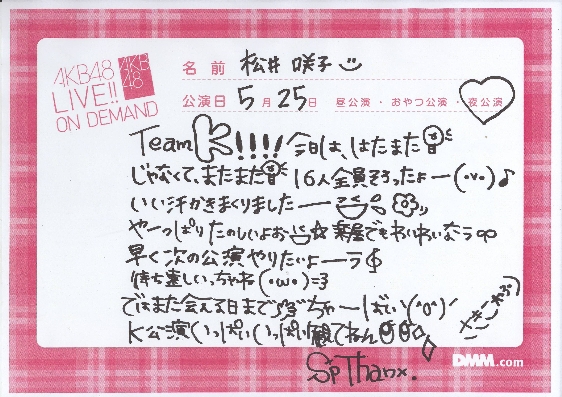 AKB48
LIVE!!
ON DEMAND
AKB
48
名前 松井 咲子
公演日 5月25日 昼公演・おやつ公演・夜公演
Team K!!!! 今日は、はたまた昔
じゃなくて、またまた昔 16人全員そろったよー(・v・)♪
いい汗かきまくりましたー
やーっぱりたのしいよお☆ 楽屋でもわいわいなう
早く次の公演やりたいよーう
待ち遠しいっちゃね(・ω・)=3
ではまた会える日まで ばーい(^o^)
K公演いっぱいいっぱい観てねん
Sp Thanx.
DMM.com